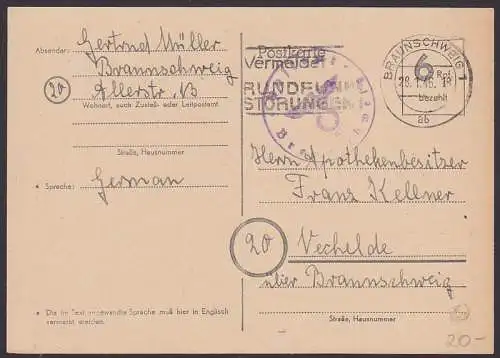 Absender: Gertrud Müller
Braunschweig
20 Allerstr. 13
Wohnort, auch Zustell- oder Leitpostamt
Straße, Hausnummer
* Sprache: German
* Die im Text angewandte Sprache muß hier in Englisch
vermerkt werden.
Postkarte
Vermeidet
RUNDFUNK
STÖRUNGEN
BRAUNSCHWEIG 1
6 Rpf
bezahlt
ab
Herrn Apothekenbesitzer
Franz Kellner
20 Vechelde
über Braunschweig
Straße, Hausnummer
20-